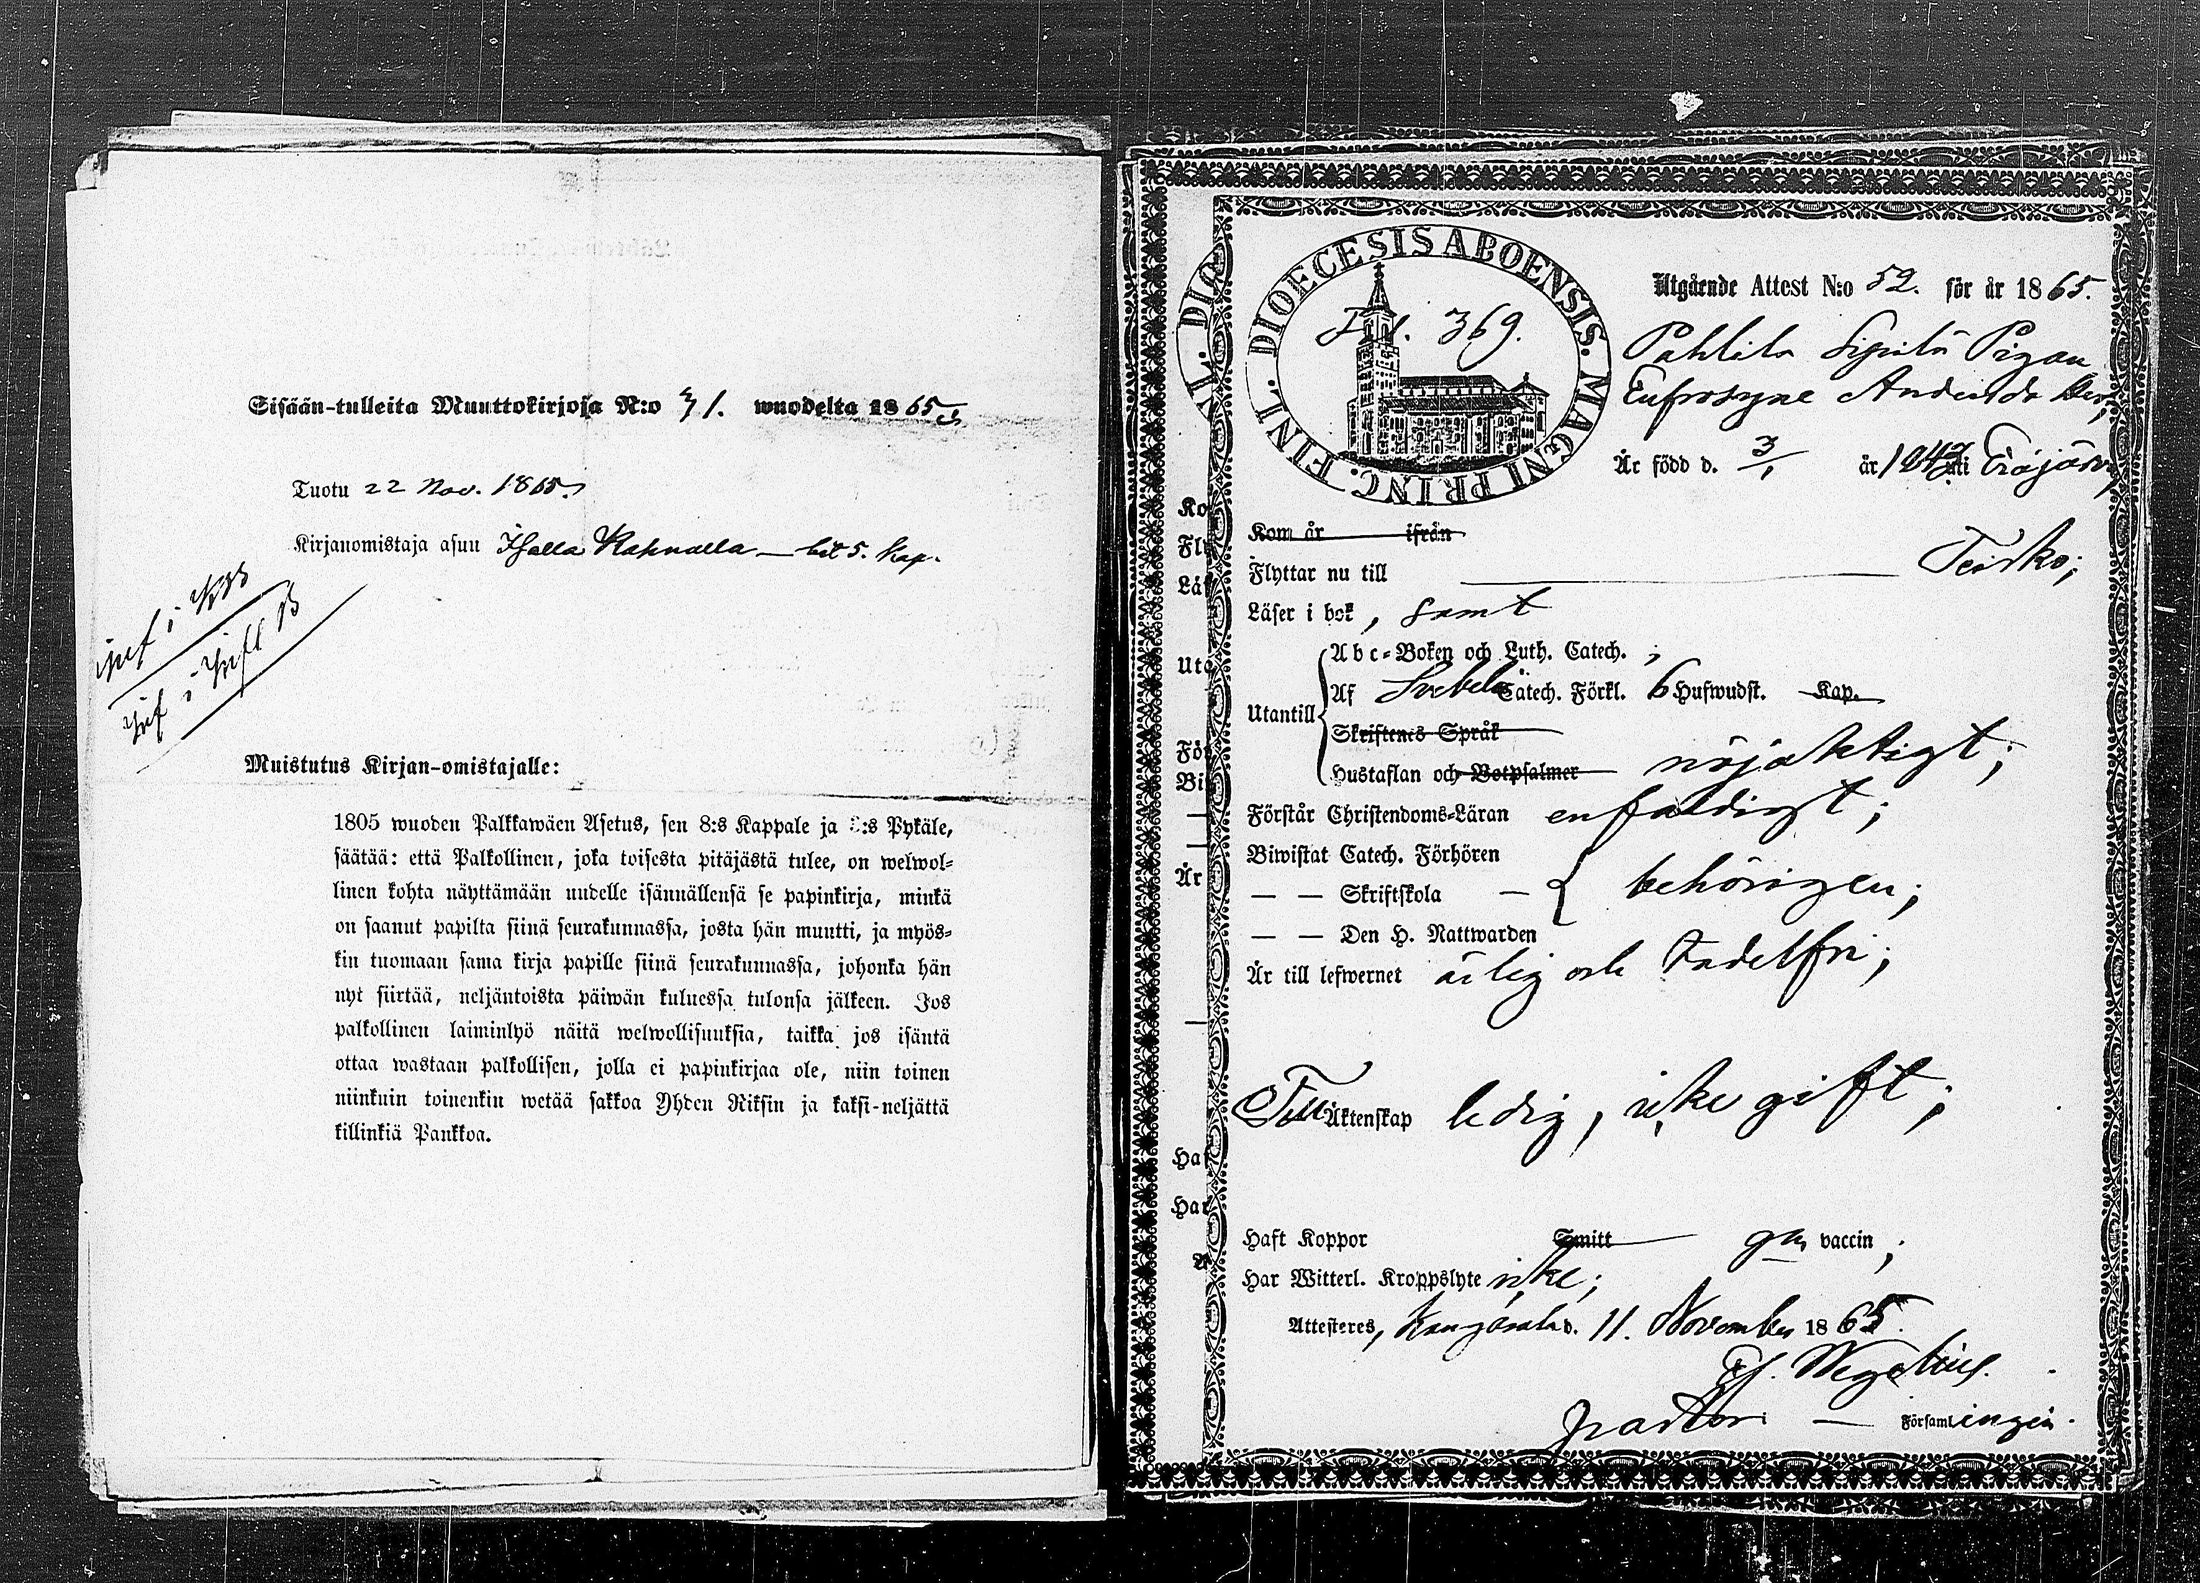 Sisään-tulleita Muuttokirjoja N:o 71. wuodelta 1865
Tuotu 22 Nov. 1865.
Kirjanomistaja asuu
inf i
inf i
Muistutus Kirjan-omistajalle:
1805 wuoden Palkkawäen Asetus, sen 8:s Kappale ja :s Pykäle,
säätää: että Palkollinen, joka toisesta pitäjästä tulee, on welwol-
linen kohta näyttämään uudelle isännällensä se papinkirja, minkä
on saanut papilta siinä seurakunnassa, josta hän muutti, ja myös-
kin tuomaan sama kirja papille siinä seurakunnassa, johonka hän
nyt siirtää, neljäntoista päiwän kuluessa tulonsa jälkeen. Jos
palkollinen laiminlyö näitä welwollisuuksia, taikka jos isäntä
ottaa wastaan palkollisen, jolla ei papinkirjaa ole, niin toinen
niinkuin toinenkin wetää sakkoa Yhden Riksin ja kaksi-neljättä
killinkiä Pankkoa.
DIOECESIS ABOENSIS. MAGNI PRINC. FINL.
369.
Utgående Attest N:o 52. för år 1865.
Pahlila Sipilä Pigan
Eufrosyne
Är född d. 3/1 år 1843 uti Eräjärvi,
Kom år ifrån
Flyttar nu till Teisko;
Läser i bok, samt
Utantill
Abc-Boken och Luth. Catech. ;
Af Svebelii Catech. Förkl. 6 Hufwudst. Kap.
Skriftenes Språk
Hustaflan och Botpsalmer nöjaktigt;
Förstår Christendoms-Läran enfaldigt;
Biwistat Catech. Förhören
— — Skriftskola — behörigen;
— — Den H. Nattwarden
Är till lefwernet ärlig och tadelfri;
Till Äktenskap ledig, icke gift;
Haft Koppor Smitt gm vaccin;
Har Witterl. Kroppslyte icke;
Attesteres, Kangasala d. 11. November 1865.
Wegelius.
pastor — Församlingen.